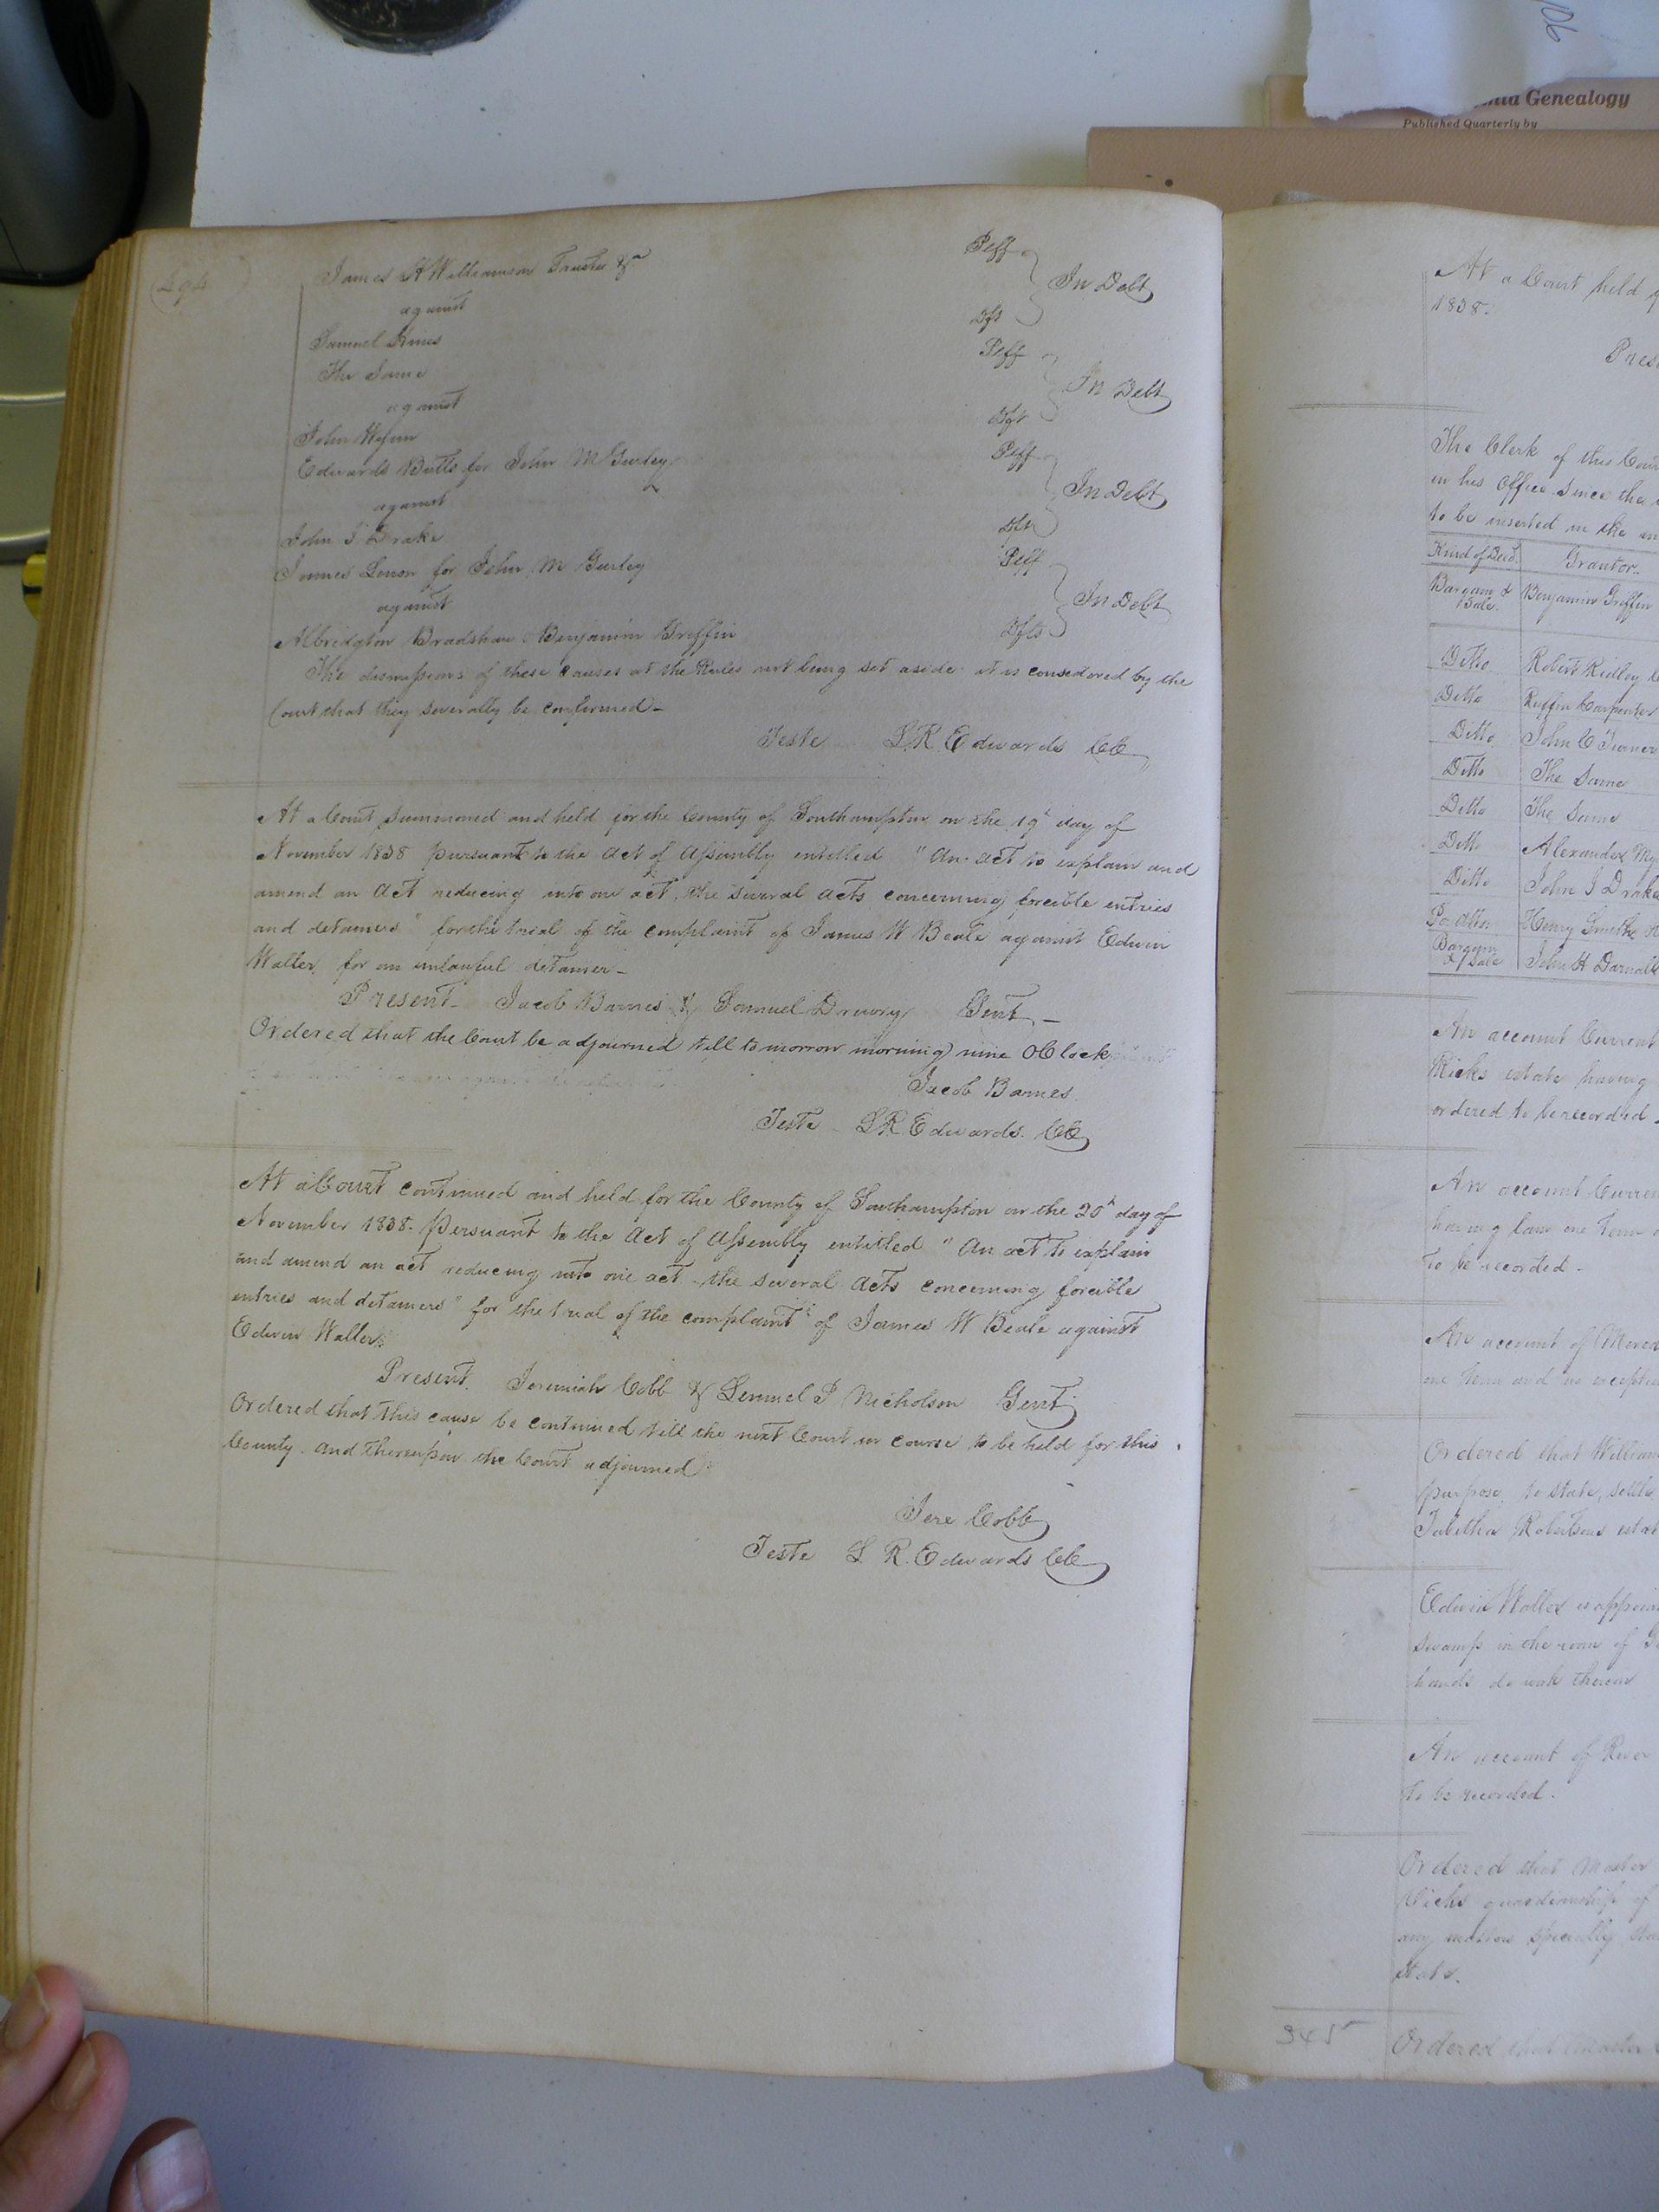 06
Genealogy
Published Quarterly by
(494)
James A Williamson Trustee &c Plff
against In Debt
Samuel Kines Dft
The Same Plff
against In Debt
John Wynn Dft
Edwards Butts for John M Gurley Plff
against In Debt
John T Drake Dft
James Lenon for John M Gurley Plff
against In Debt
Albridgton Bradshaw Benjamin Griffin Dfts
The dismissions of these causes at the Rules not being set aside it is considered by the
Court that they severally be confirmed -
Teste L. R. Edwards CC
At a Court Summoned and held for the County of Southampton on the 19th day of
November 1838 pursuant to the act of assembly entitled "An act to explain and
amend an act reducing into one act, the several acts concerning forcible entries
and detainers" for the trial of the complaint of James W Beale against Edwin
Waller, for an unlawful detainer -
Present - Jacob Barnes & Samuel Drewry Gent -
Ordered that the Court be adjourned till tomorrow morning nine OClock
Jacob Barnes
Teste L R Edwards. CC
At a Court continued and held for the County of Southampton on the 20th day of
November 1838. Persuant to the act of assembly entitled "An act to explain
and amend an act reducing into one act the several acts concerning forcible
entries and detainers" for the trial of the complaint of James W Beale against
Edwin Waller
Present. Jeremiah Cobb & Lemuel P Nicholson Gent
Ordered that this cause be continued till the next Court in course to be held for this
County. And thereupon the Court adjourned
Jere Cobb
Teste L R. Edwards CC
At a Court held
1838.
The Clerk of this
in his office since the
to be inserted in the
Kind of Deed. Grantor.
Bargain & Sale. Benjamin Griffin
Ditto Robert Ridley
Ditto Ruffin Carpenter
Ditto John C Turner
Ditto The Same
Ditto The Same
Ditto Alexander
Ditto John T Drake
Henry Smith
Bargain & Sale John H Darnall
An account Current
Ricks estate having
ordered to be recorded
An account
having lain one Term
to be recorded -
An account of
one term and no
Ordered that William
purpose, to state, settle
Tabitha Robertsons
Edwin Waller is
swamp in the room of
hands do work thereon
An account of
to be recorded.
Ordered that Master
Ricks guardianship of
any matters specially
State.
345
Ordered that Master